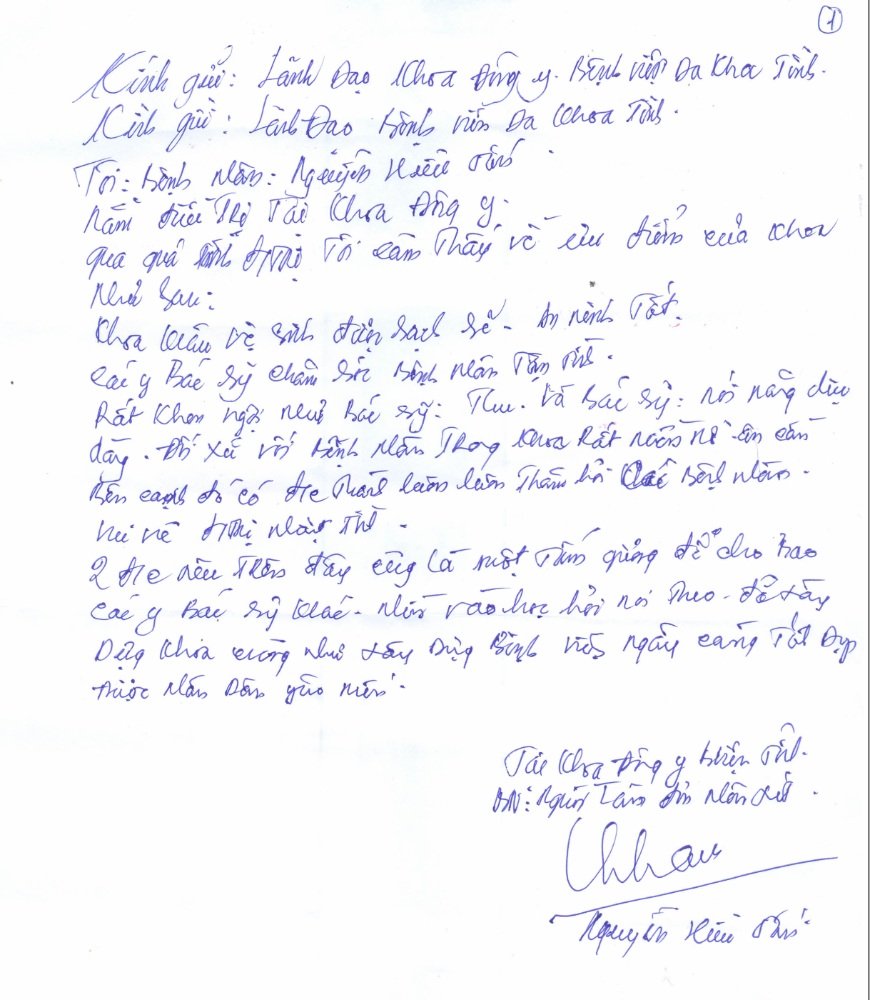 1
Kính gửi: Lãnh Đạo Khoa Đông y. Bệnh viện Đa Khoa Tỉnh.
Kính gửi: Lãnh Đạo Bệnh viện Đa Khoa Tỉnh.
Tôi: Bệnh Nhân: Nguyễn Hữu
Nằm điều Trị Tại Khoa Đông y.
qua quá Tôi cảm Thấy về ưu điểm của Khoa
Như Sau:
Khoa vệ sinh sạch sẽ - An ninh Tốt.
Các y Bác Sỹ chăm sóc Bệnh Nhân Tận tình.
Rất Khen ngợi như Bác sỹ: Thu. Và Bác sỹ: nói năng dịu
dàng. Đối xử với Bệnh Nhân Trong Khoa Rất niềm nở - ân cần
Bên cạnh đó có luôn luôn Thăm hỏi Các Bệnh Nhân.
Vui vẻ
2 nêu Trên đây cũng Là một Tấm gương để cho bao
Các y Bác sỹ Khác - Nhìn vào học hỏi noi Theo - để xây
Dựng Khoa cũng như xây Dựng Bệnh viện ngày càng Tốt Đẹp
được Nhân Dân yêu mến.
Tại Khoa Đông y
BN: Người Làm đơn
Nguyễn Hữu